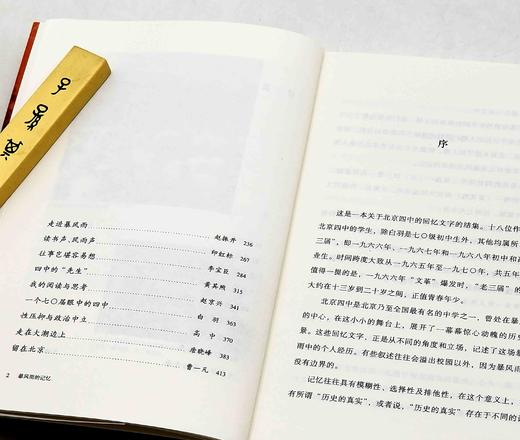 走进暴风雨 赵振开 236
读书声,风雨声 印红标 267
往事岂堪容易想 李宝臣 284
四中的“先生” 黄其煦 315
我的阅读与思考 赵京兴 341
一个七〇届眼中的四中 白羽 365
性压抑与政治中立 高中 377
走在大潮边上 唐晓峰 383
留在北京 曹一凡 413
2 暴风雨的记忆
序
这是一本关于北京四中的回忆文字的结集。十八位作
北京四中的学生,除白羽是七〇级初中生外,其他均属所
三届”,即一九六六年、一九六七年和一九六八年初中和高
业生。时间跨度大致从一九六五年至一九七〇年,共五年
值得一提的是,一九六六年“文革”爆发时,“老三届”的
大约在十三岁到二十岁之间,正值青春年少。
北京四中是北京乃至全国最有名的中学之一,曾处在暴
的中心,在这小小的舞台上,展开了一幕幕惊心动魄的历史
景。这些回忆文字,正是从不同的角度和立场,记述了这场暴
雨中的个人经历。有些叙述往往会溢出校园以外,因为暴风雨
没有边界的。
记忆往往具有模糊性、选择性及排他性,在这个意义上,
有所谓“历史的真实”,或者说,“历史的真实”存在于不同的讲